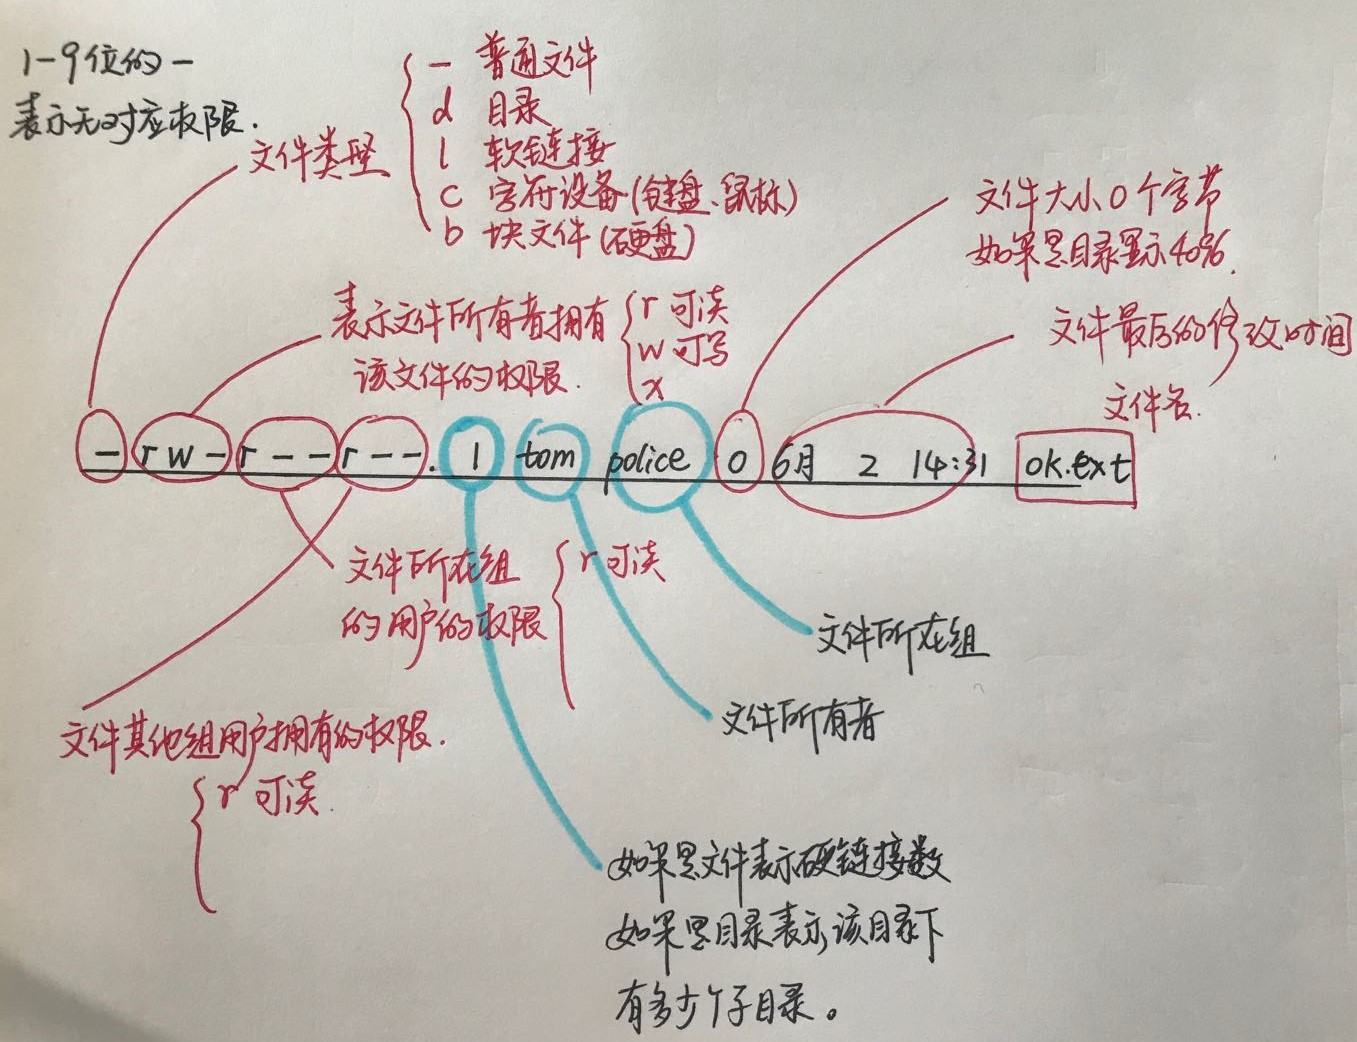 1-9位的-
表示无对应权限.
文件类型
- 普通文件
d 目录
l 软链接
c 字符设备(键盘、鼠标)
b 块文件(硬盘)
文件大小0个字节
如果是目录显示4096.
表示文件所有者拥有
该文件的权限.
r 可读
w 可写
x
文件最后的修改时间
文件名.
-rw-r--r--. 1 tom police 0 6月 2 14:31 ok.ext
文件所在组
的用户的权限
r 可读
文件所在组
文件所有者
文件其他组用户拥有的权限.
r 可读.
如果是文件表示硬链接数
如果是目录表示该目录下
有多少个子目录。